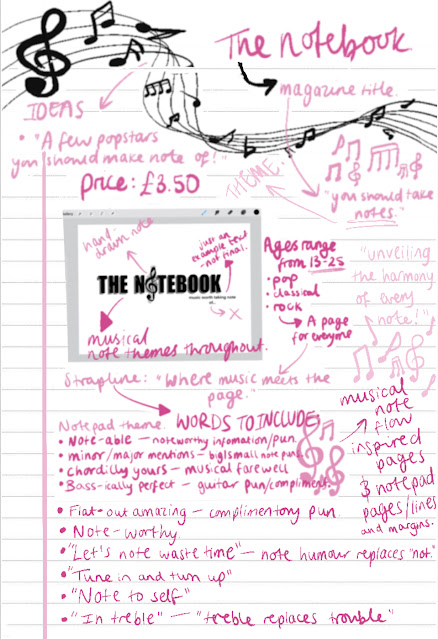 The notebook
magazine title.
IDEAS
• "A few popstars
you should make note of!"
Price: £3.50
THEME
"you should take
notes."
hand-
drawn note
just an
example text
- not final.
THE NOTEBOOK
music worth taking note
of...
x
musical
note themes throughout.
Ages range
from 13-25
• pop
• classical
• rock
A page
for everyone
"unveiling
the harmony
of every
note!"
Strapline: "Where music meets the
page."
Notepad theme.
WORDS TO INCLUDE
• Note-able — noteworthy infomation/pun
• minor/major mentions — big/small note puns.
• chordilly yours — musical farewell
• Bass-ically perfect — guitar pun/compliment.
musical
note
flow
inspired
pages
& notepad
pages/lines
and margins.
• Flat-out amazing — complimentory pun.
• Note-worthy.
• "Let's note waste time" — note humour replaces "not."
• "Tune in and turn up"
• "Note to self"
• "In treble" — "treble replaces trouble"